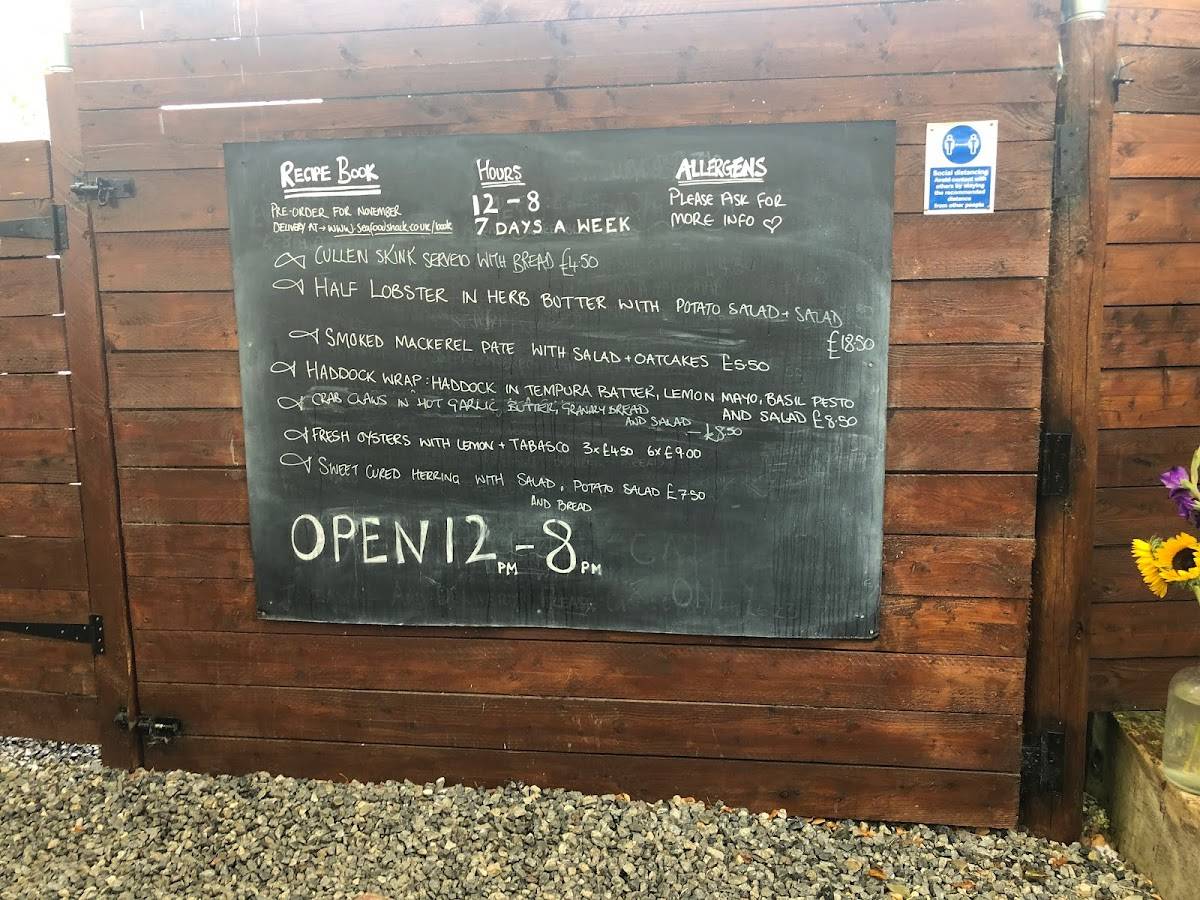 RECIPE BOOK
PRE-ORDER FOR NOVEMBER
DELIVERY AT → www.seafoodshack.co.uk/book
HOURS
12 - 8
7 DAYS A WEEK
ALLERGENS
PLEASE ASK FOR
MORE INFO ♡
Social distancing
Avoid contact with
others by staying
the recommended
distance
from other people
CULLEN SKINK SERVED WITH BREAD £4.50
HALF LOBSTER IN HERB BUTTER WITH POTATO SALAD + SALAD
£18.50
SMOKED MACKEREL PATE WITH SALAD + OATCAKES £5.50
HADDOCK WRAP: HADDOCK IN TEMPURA BATTER, LEMON MAYO, BASIL PESTO
AND SALAD £8.50
CRAB CLAWS IN HOT GARLIC BUTTER, GRANARY BREAD
AND SALAD - £8.50
FRESH OYSTERS WITH LEMON + TABASCO 3x£4.50 6x£9.00
SWEET CURED HERRING WITH SALAD, POTATO SALAD £7.50
AND BREAD
OPEN 12PM - 8PM